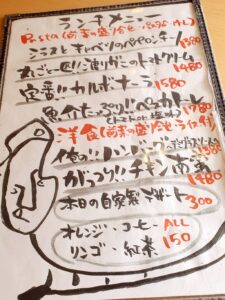 ランチメニュー
Pasta(前菜の盛り合せ
シラスとキャベツのペペロンチーノ 1380
丸ごと一匹!!渡りガニのトマトクリーム 1480
定番!!カルボナーラ 1580
魚介たっぷり!!ペスカトーレ 1780
洋食(前菜の盛り合せ・ライス付)
俺の!!ハンバーグ
がっつり!!チキン南蛮 1480
本日の自家製デザート 300
オレンジ・コーヒー ALL
リンゴ・紅茶 150